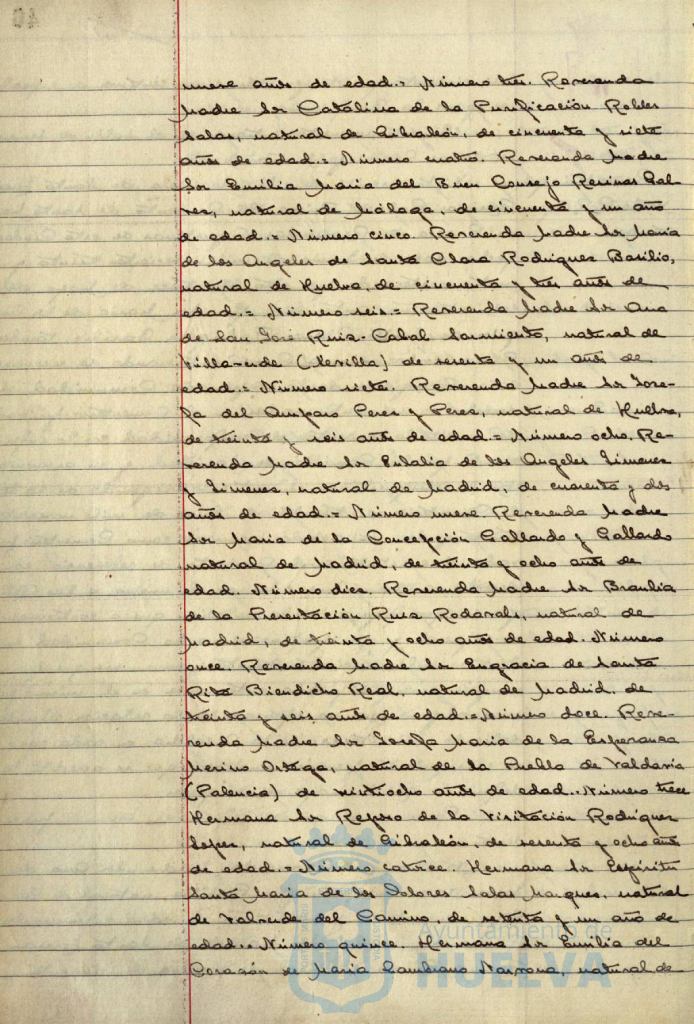 nueve años de edad.= Número tres. Reverenda
Madre Sor Catalina de la Purificación Robles
Salas, natural de Gibraleón, de cincuenta y siete
años de edad.= Número cuatro. Reverenda Madre
Sor Emilia Maria del Buen Consejo Recinas Gal-
vez, natural de Málaga, de cincuenta y un año
de edad.= Número cinco. Reverenda Madre Sor Maria
de los Angeles de Santa Clara Rodriguez Basilio,
natural de Huelva, de cincuenta y tres años de
edad.= Número seis.= Reverenda Madre Sor Ana
de San José Ruiz-Cabal Sarmiento, natural de
Villaverde (Sevilla) de sesenta y un años de
edad.= Número siete. Reverenda Madre Sor Jose-
fa del Amparo Perez y Perez, natural de Huelva,
de treinta y seis años de edad.= Número ocho. Re-
verenda Madre Sor Eulalia de los Angeles Gimenez
y Gimenez, natural de Madrid, de cuarenta y dos
años de edad.= Número nueve. Reverenda Madre
Sor Maria de la Concepción Gallardo y Gallardo
natural de Madrid, de treinta y ocho años de
edad. Número diez. Reverenda Madre Sor Braulia
de la Presentación Ruiz natural de
Madrid, de treinta y ocho años de edad. Número
once. Reverenda Madre Sor Engracia de Santa
Rita Biendicho Real, natural de Madrid, de
treinta y seis años de edad.= Número doce. Reve-
renda Madre Sor Josefa Maria de la Esperanza
Merino Ortega, natural de la Puebla de Valdavia
(Palencia) de veintiocho años de edad.= Número trece
Hermana Sor Reposo de la Visitación Rodriguez
Lopez, natural de Gibraleón, de sesenta y ocho años
de edad.= Número catorce. Hermana Sor Espiritu
Santo Maria de los Dolores Salas Marquez, natural
de Valverde del Camino, de setenta y un año de
edad.= Número quince. Hermana Sor Emilia del
Corazón de Maria natural de
Ayuntamiento de
HUELVA